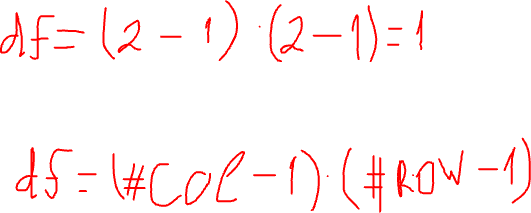 df = (2 - 1) · (2 - 1) = 1
df = (#COL - 1) · (#ROW - 1)